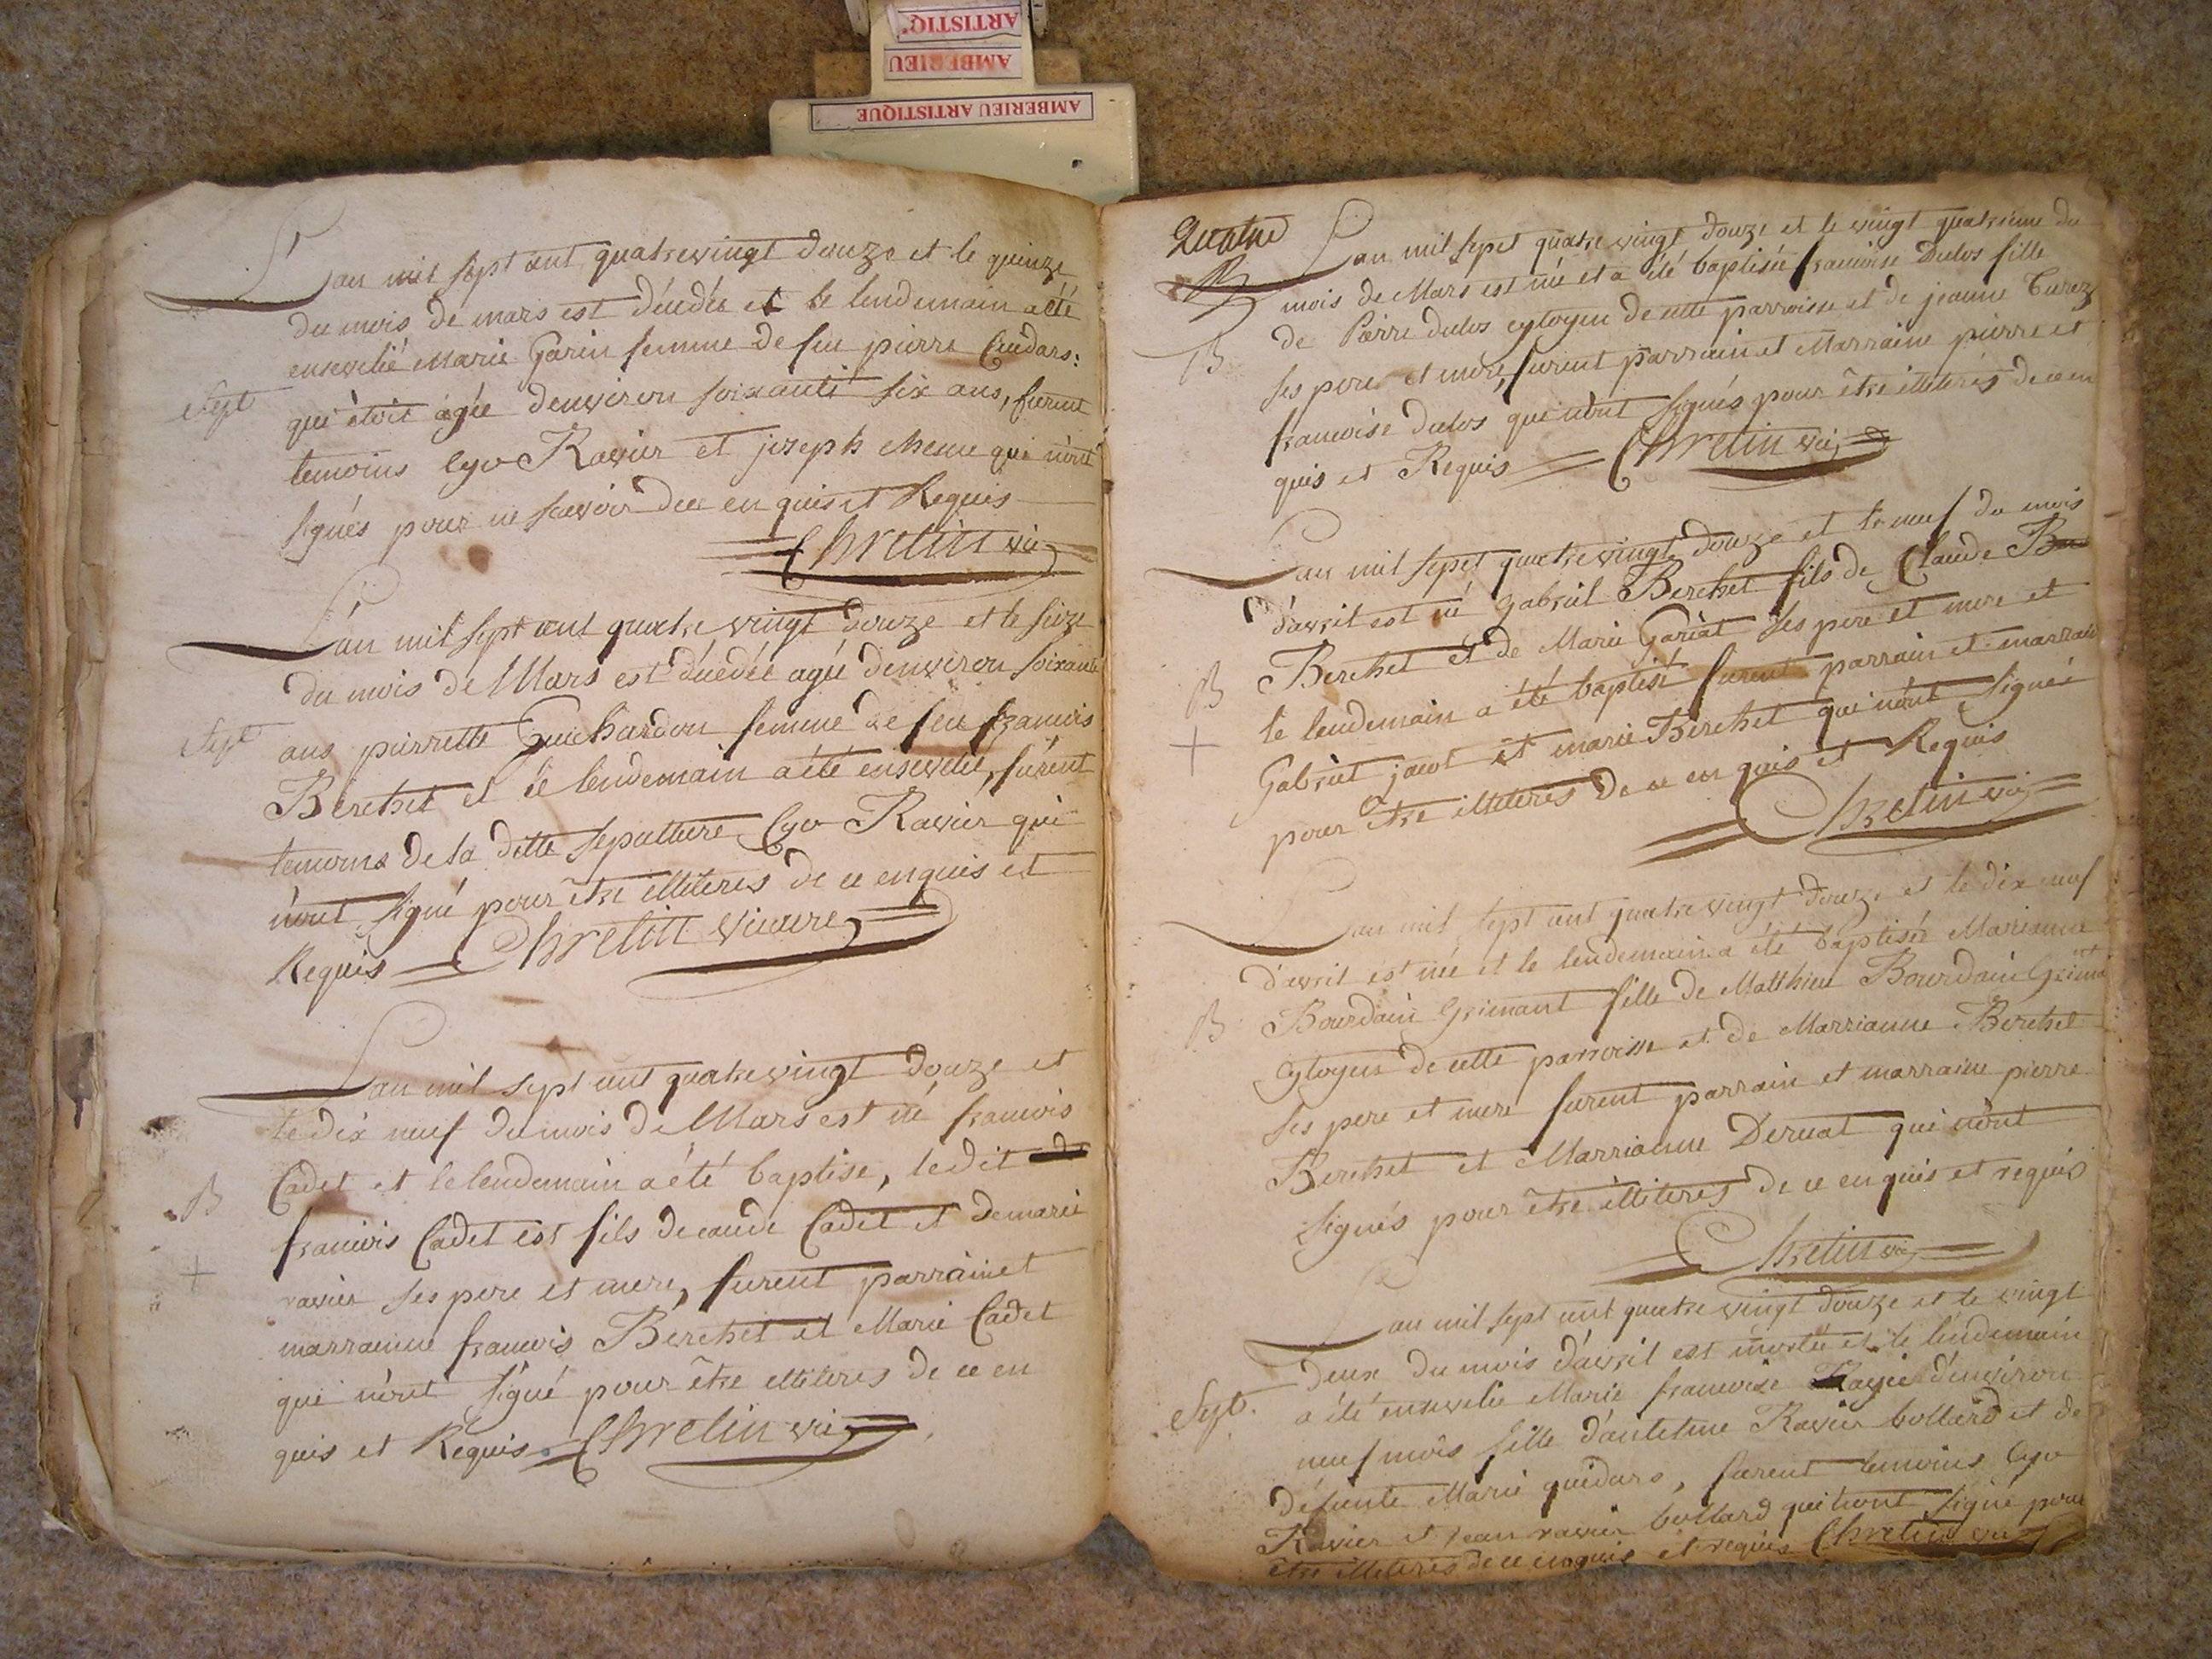 ARTISTIQ'
AMBERIEU
AMBERIEU ARTISTIQUE
L'an mil sept cent quatrevingt douze et le quinze
du mois de mars est décédée et le lendemain a été
ensevelie Marie Garin femme de feu pierre Cuidars:
Sept
qui étoit agée denviron soixante six ans, furent
temoins Cyr Ravier et joseph chesne qui n'ont
signés pour ne sçavoir de ce enquis et Requis
Chretin vic
L'an mil sept cent quatre vingt douze et le seize
du mois de Mars est décédée agée denviron soixante
Sept
ans pierrette Guichardon femme de feu françois
Berchet et le lendemain a été ensevelie, furent
temoins de la ditte sepulture Cyr Ravier qui
n'ont signé pour être illiteres de ce enquis et
Requis Chretin vicaire
L'an mil sept cent quatrevingt douze et
le dix neuf du mois de Mars est né francois
Cadet et le lendemain a été baptise, le dit
B
francois Cadet est fils de caude Cadet et de marie
+
ravier ses pere et mere, furent parrain et
marrainne francois Berchet et Marie Cadet
qui n'ont signé pour être illiteres de ce en
quis et Requis. Chretin vic
Quatre
L'an mil sept quatre vingt douze et le vingt quatrieme du
B
mois de Mars est née et a été baptisée francoise Dulos fille
de Pierre dulos cytoyen de cette parroisse et de jeanne
B
ses pere et mere, furent parrain et Marraine pierre et
francoise dulos qui n'ont signés pour être illiterés de ce en
quis et Requis Chretin vic
L'an mil sept quatre vingt douze et le neuf du mois
d'avril est né Gabriel Berchet fils de Claude
Berchet et de Marie Gariat ses pere et mere et
B
le lendemain a été baptisé furent parrain et marrain
+
Gabriel jacot et marie Berchet qui n'ont signés
pour être illiteres de ce en quis et Requis
Chretin vic
L'an mil sept cent quatre vingt douze et le dix neuf
d'avril est née et le lendemain a été baptisée Marianne
B
Bourdain Grimant fille de Matthieu Bourdain Grimant
cytoyen de cette parroisse et de Marrianne Berchet
ses pere et mere furent parrain et marraine pierre
Berchet et Marrianne Deruat qui n'ont
signés pour être illiteres de ce enquis et requis
Chretin vic
L'an mil sept cent quatre vingt douze et le vingt
deux du mois d'avril est morte et le lendemain
Sept.
a été ensevelie Marie francoise agée d'environ
neuf mois fille d'antelme Ravier bollard et de
défunte Marie quidars, furent temoins Cyr
Ravier et jean ravier bollard qui n'ont signé pour
être illiteres de ce enquis et requis Chretin vic